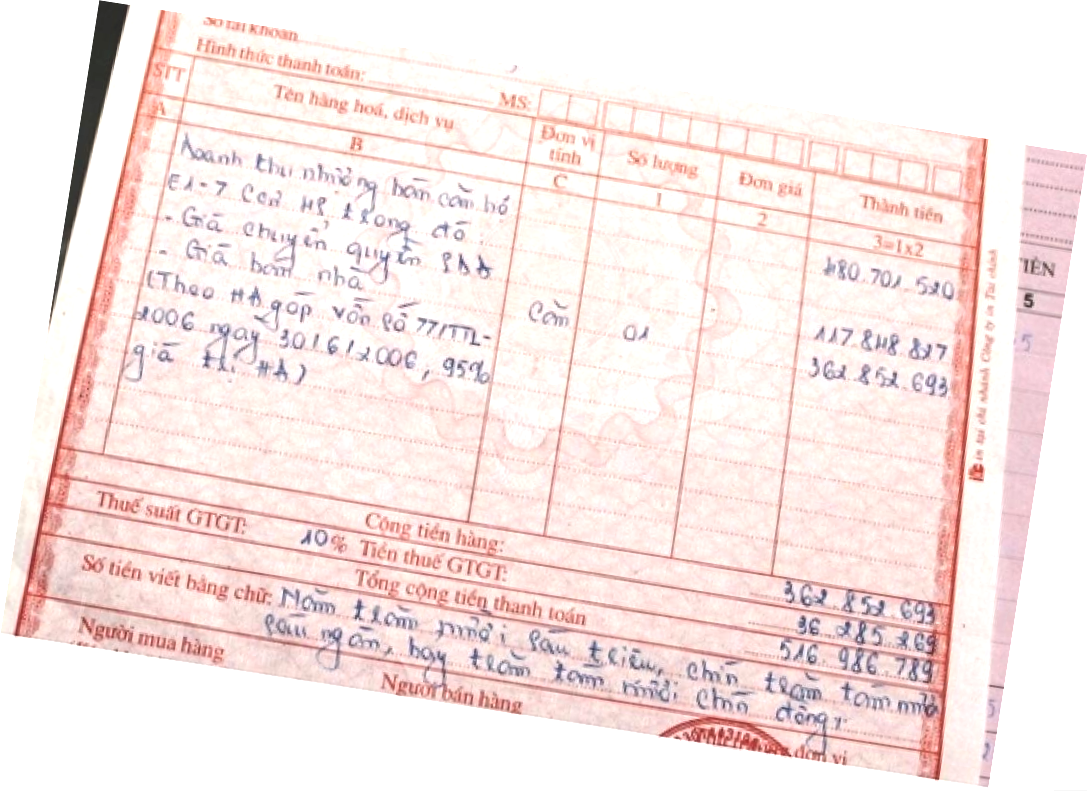 Số tài khoản
Hình thức thanh toán: MS:
STT Tên hàng hoá, dịch vụ Đơn vị tính Số lượng Đơn giá Thành tiền
A B C 1 2 3=1x2
Doanh thu nhượng bán căn hộ 480.701.520
E1-7 trong đó:
- Giá chuyển quyền SDĐ 117.848.827
- Giá bán nhà Căn 01 362.852.693
(Theo HĐ góp vốn số 77/TTL-
2006 ngày 30/6/2006, 95%
giá trị HĐ)
Cộng tiền hàng: 362.852.693
Thuế suất GTGT: 10% Tiền thuế GTGT: 36.285.269
Tổng cộng tiền thanh toán 516.986.789
Số tiền viết bằng chữ: Năm trăm mười sáu triệu, chín trăm tám mươi
sáu ngàn, bảy trăm tám mươi chín đồng.
Người mua hàng Người bán hàng đơn vị
In tại chi nhánh Công ty in Tài chính
TIỀN
5